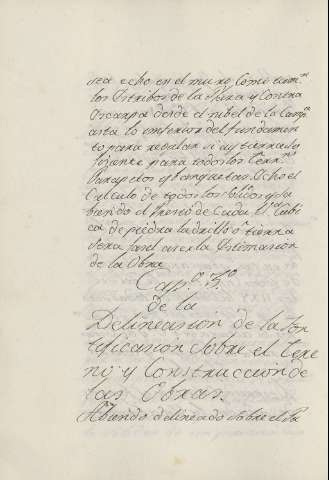 sea echo en el muro, Como tamn
los Estribos de la Obra y Contra
Escarpa desde el nibel de la Campa
asta lo ynferior del fundamen
to para revalar si ay tierra su
ficiente para todos los Terrs
Parapetos y banquetas Echo el
Calculo de todos los Solidos y sa
bando el Presio de Cada Va Cubi
ca de piedra ladrillo o tierra
sera facil aser la Estimasion
de la Obra
Capo 3o
de la
Delineasion de la for
tificasion sobre el Terre
no y Construccion de
las Obras
Abiendo delineado sobre el Pa